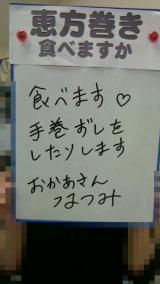 恵方巻き
食べますか
食べます♡
手巻ずしを
したりします
おかあさん
つまつみ